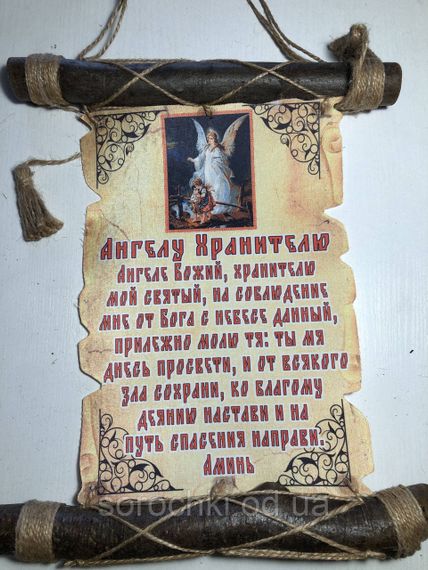 Ангелу Хранителю
Ангеле Божий, хранителю
мой святый, на соблюдение
мне от Бога с небесе данный,
прилежно молю тя: ты мя
днесь просвети, и от всякого
зла сохрани, ко благому
деянию настави и на
путь спасения направи.
Аминь
sorochki.od.ua